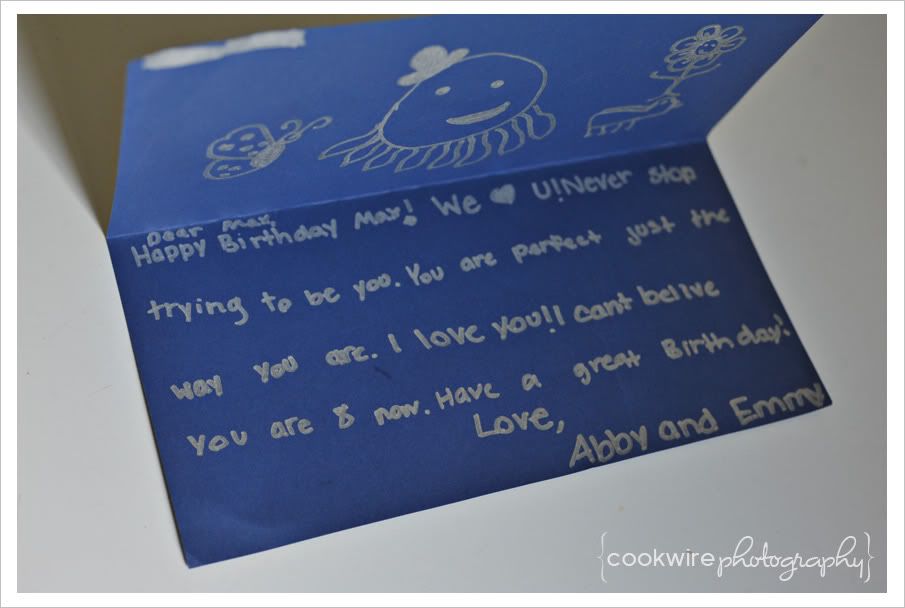 Dear Max,
Happy Birthday Max! We ♥ U! Never stop
trying to be you. You are parfect just the
way you are. I love you!! I cant belive
you are 8 now. Have a great Birthday!
Love,
Abby and Emmy
{cookwire photography}